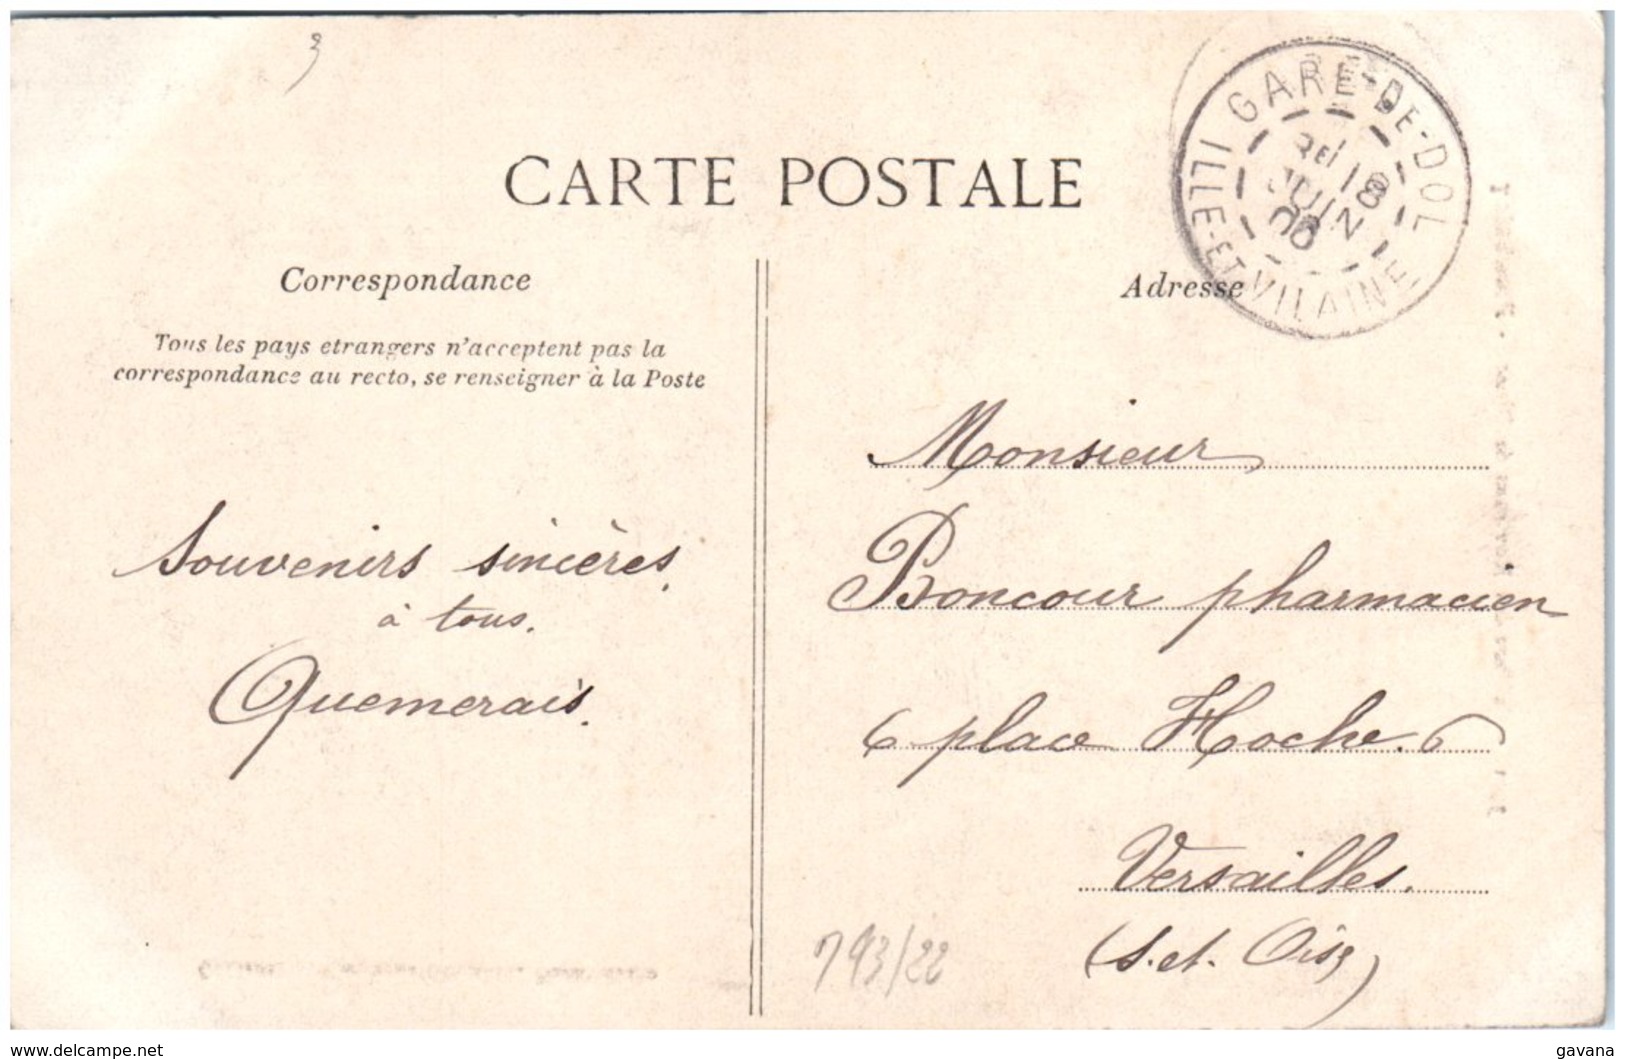 3
CARTE POSTALE
GARE-DE-DOL
ILLE-ET-VILAINE
18
JUIN
08
Correspondance
Tous les pays etrangers n'acceptent pas la
correspondance au recto, se renseigner à la Poste
Adresse
Souvenirs sincères
à tous.
Quemerais.
Monsieur
Boncour pharmacien
6 place Hoche. 6
Versailles.
(S. et. Oise)
793/22
www.delcampe.net
gavana